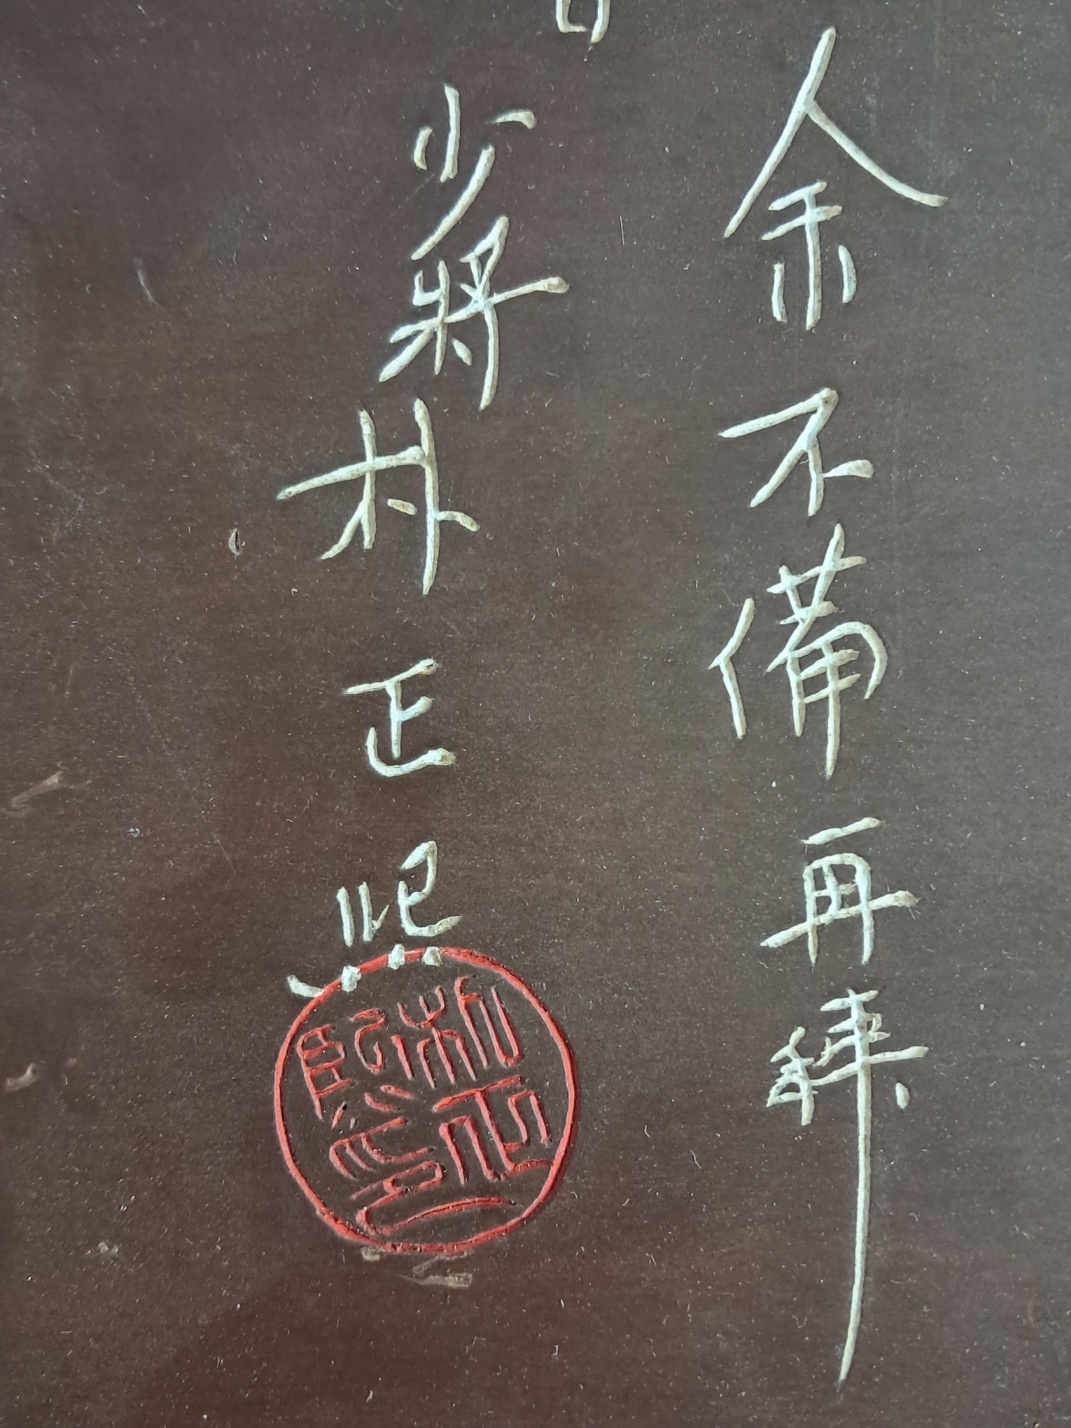 余不備再拜
少將朴正熙